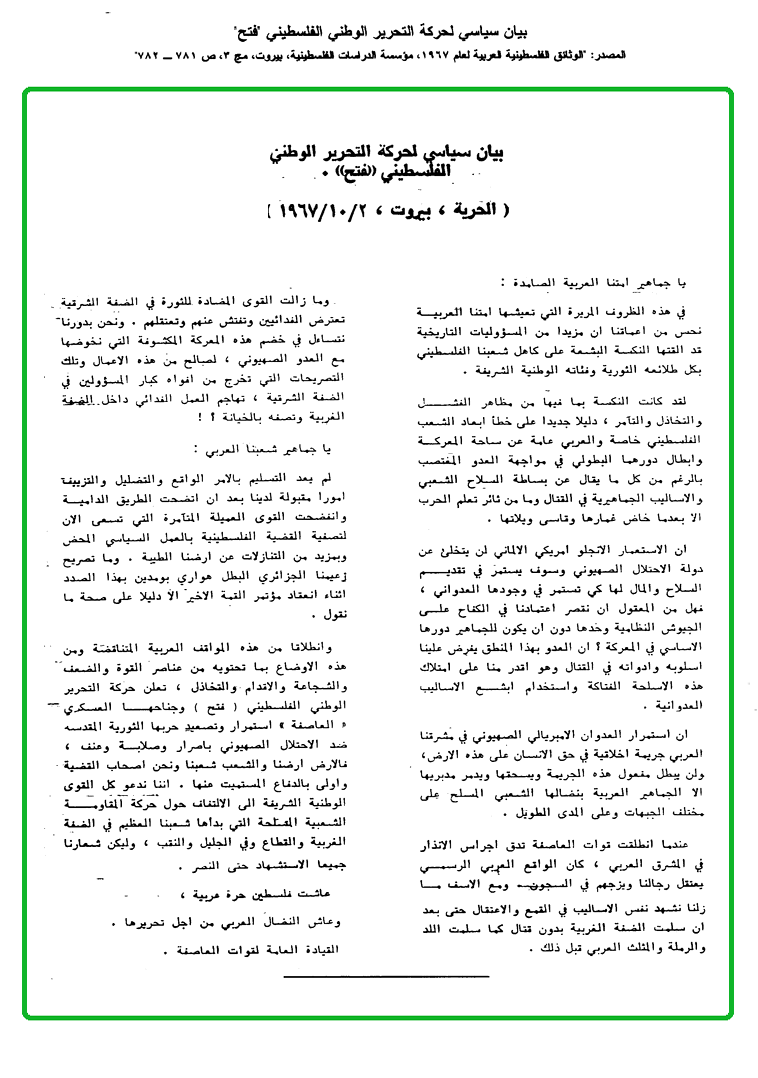 بيان سياسي لحركة التحرير الوطني الفلسطيني "فتح"
المصدر: "الوثائق الفلسطينية العربية لعام ١٩٦٧، مؤسسة الدراسات الفلسطينية، بيروت، مج ٣، ص ٧٨١ ــ ٧٨٢"
بيان سياسي لحركة التحرير الوطني
الفلسطيني ((فتح)) .
( الحرية ، بيروت ، ١٩٦٧/١٠/٢ )
يا جماهير امتنا العربية الصامدة :
في هذه الظروف المريرة التي تعيشها امتنا العربيــة
نحس من اعماقنا ان مزيدا من المسؤوليات التاريخية
قد القتها النكسة البشعة على كاهل شعبنا الفلسطيني
بكل طلائعه الثورية وفئاته الوطنية الشريفة .
لقد كانت النكسة بما فيها من مظاهر الفشــــل
والتخاذل والتآمر ، دليلا جديدا على خطأ ابعاد الشعب
الفلسطيني خاصة والعربي عامة عن ساحة المعركــة
وابطال دورهما البطولي في مواجهة العدو المغتصب
بالرغم من كل ما يقال عن بساطة السلاح الشعبي
والاساليب الجماهيرية في القتال وما من ثائر تعلم الحرب
الا بعدما خاض غمارها وقاسى ويلاتها .
ان الاستعمار الانجلو امريكي الالماني لن يتخلى عن
دولة الاحتلال الصهيوني وسوف يستمر في تقديــم
السلاح والمال لها كي تستمر في وجودها العدواني ،
فهل من المعقول ان نقصر اعتمادنا في الكفاح علــى
الجيوش النظامية وحدها دون ان يكون للجماهير دورها
الاساسي في المعركة ؟ ان العدو بهذا المنطق يفرض علينا
اسلوبه وادواته في القتال وهو اقدر منا على امتلاك
هذه الاسلحة الفتاكة واستخدام ابشع الاساليب
العدوانية .
ان استمرار العدوان الامبريالي الصهيوني في مشرقنا
العربي جريمة اخلاقية في حق الانسان على هذه الارض،
ولن يبطل مفعول هذه الجريمة ويسحقها ويدمر مدبريها
الا الجماهير العربية بنضالها الشعبي المسلح على
مختلف الجبهات وعلى المدى الطويل .
عندما انطلقت قوات العاصفة تدق اجراس الانذار
في المشرق العربي ، كان الواقع العربي الرسمي
يعتقل رجالنا ويزجهم في السجون ومع الاسف مــا
زلنا نشهد نفس الاساليب في القمع والاعتقال حتى بعد
ان سلمت الضفة الغربية بدون قتال كما سلمت اللد
والرملة والمثلث العربي قبل ذلك .
وما زالت القوى المضادة للثورة في الضفة الشرقية
تعترض الفدائيين وتفتش عنهم وتعتقلهم . ونحن بدورنا
نتساءل في خضم هذه المعركة المكشوفة التي نخوضها
مع العدو الصهيوني ، لصالح من هذه الاعمال وتلك
التصريحات التي تخرج من افواه كبار المسؤولين في
الضفة الشرقية ، تهاجم العمل الفدائي داخل الضفة
الغربية وتصفه بالخيانة ؟ !
يا جماهير شعبنا العربي :
لم يعد التسليم بالامر الواقع والتضليل والتزييف
امورا مقبولة لدينا بعد ان اتضحت الطريق الداميــة
وانفضحت القوى العميلة المتآمرة التي تسعى الان
لتصفية القضية الفلسطينية بالعمل السياسي المحض
وبمزيد من التنازلات عن ارضنا الطيبة . وما تصريح
زعيمنا الجزائري البطل هواري بومدين بهذا الصدد
اثناء انعقاد مؤتمر القمة الاخير الا دليلا على صحة ما
نقول .
وانطلاقا من هذه المواقف العربية المتناقضة ومن
هذه الاوضاع بما تحتويه من عناصر القوة والضعف
والشجاعة والاقدام والتخاذل ، تعلن حركة التحرير
الوطني الفلسطيني ( فتح ) وجناحهــا العسكري
« العاصفة » استمرار وتصعيد حربها الثورية المقدسه
ضد الاحتلال الصهيوني باصرار وصلابــة وعنف ،
فالارض ارضنا والشعب شعبنا ونحن اصحاب القضية
واولى بالدفاع المستميت عنها . اننا ندعو كل القوى
الوطنية الشريفة الى الالتفاف حول حركة المقاومــة
الشعبية المسلحة التي بدأها شعبنا العظيم في الضفة
الغربية والقطاع وفي الجليل والنقب ، وليكن شعارنا
جميعا الاستشهاد حتى النصر .
عاشت فلسطين حرة عربية ،
وعاش النضال العربي من اجل تحريرها .
القيادة العامة لقوات العاصفة .